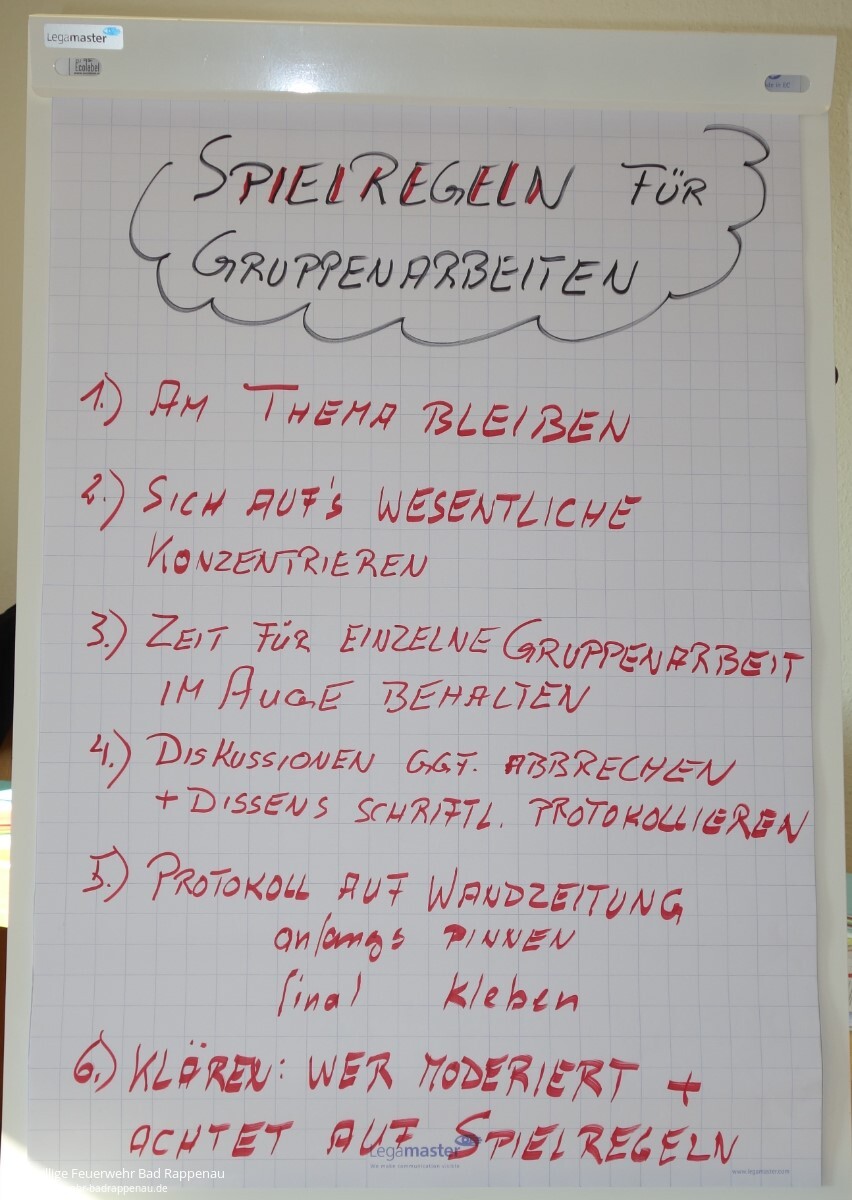 Legamaster
Ecolabel
SPIELREGELN FÜR
GRUPPENARBEITEN
1.) AM THEMA BLEIBEN
2.) SICH AUF's WESENTLICHE
KONZENTRIEREN
3.) ZEIT FÜR EINZELNE GRUPPENARBEIT
IM AUGE BEHALTEN
4.) DISKUSSIONEN GGF. ABBRECHEN
+ DISSENS SCHRIFTL. PROTOKOLLIEREN
5.) PROTOKOLL AUF WANDZEITUNG
anfangs PINNEN
final kleben
6.) KLÄREN: WER MODERIERT +
ACHTET AUF SPIELREGELN
Legamaster
www.legamaster.com
Feuerwehr Bad Rappenau